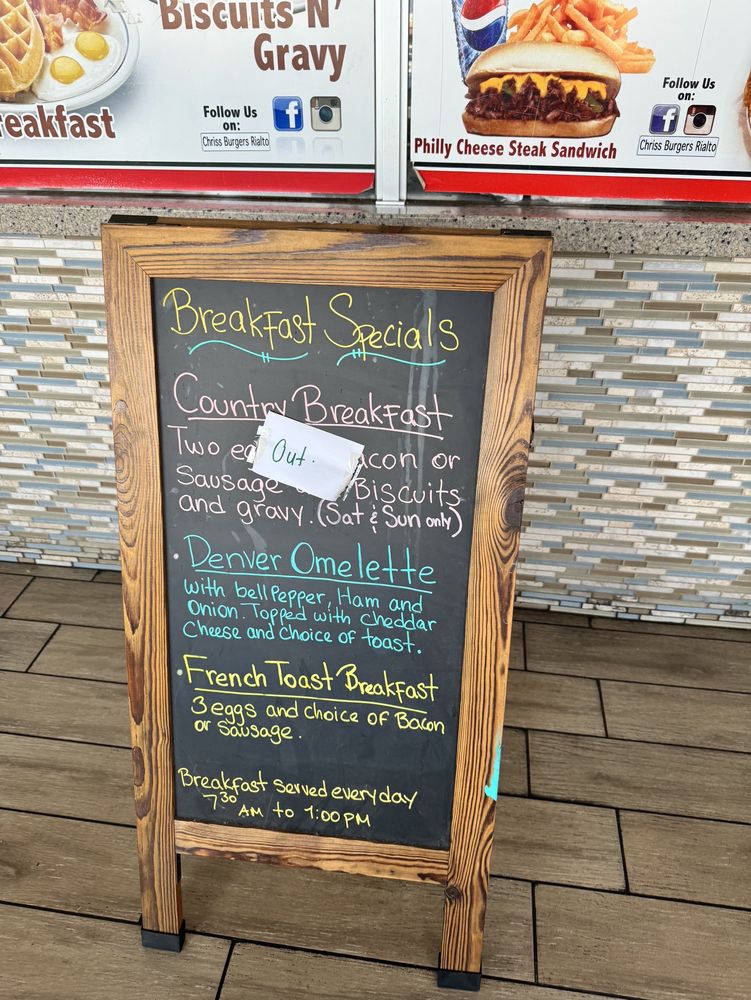 Biscuits N'
Gravy
reakfast
Follow Us
on:
Chriss Burgers Rialto
Philly Cheese Steak Sandwich
Follow Us
on:
Chriss Burgers Rialto
Breakfast Specials
Country Breakfast
Two
Out.
acon or
Sausage
Biscuits
and gravy. (Sat & Sun only)
• Denver Omelette
with bell Pepper, Ham and
Onion. Topped with cheddar
Cheese and choice of toast.
• French Toast Breakfast
3 eggs and choice of Bacon
or Sausage.
Breakfast served everyday
7:30 AM to 1:00 PM